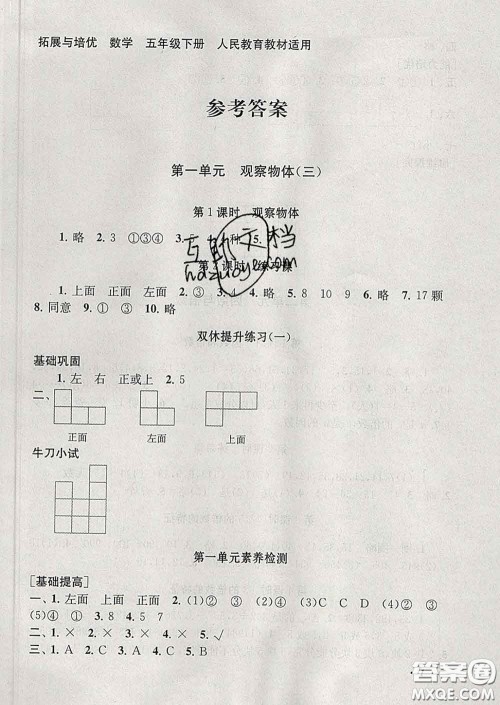 拓展与培优　数学　五年级下册　人民教育教材适用
参考答案
第一单元　观察物体(三)
第1课时　观察物体
1. 略　2. 3　①③④　3. 5　4. 种　5.
互助文档
hdzuoye.com
第2课时　练习课
1. 上面　正面　左面　2. ③　3. 4　4. 略　5. 8　10　9　6. 略　7. 17颗
8. 同意　9. ①　③　10. 略
双休提升练习(一)
基础巩固
一、1. 左　右　正或上　2. 5
二、
正面　左面　上面
牛刀小试
第一单元素养检测
[基础提高]
一、1. 左面　上面　正面　2. (1)②　(2)①　③　(3)④　(4)②　③
(5)④　①　3. 8　4. ①　5. ①
二、1. ×　2. ×　3. ×　4. ×　5. √
三、1. A　2. C　3. A　4. C　5. A
答案圈
MXQE.COM